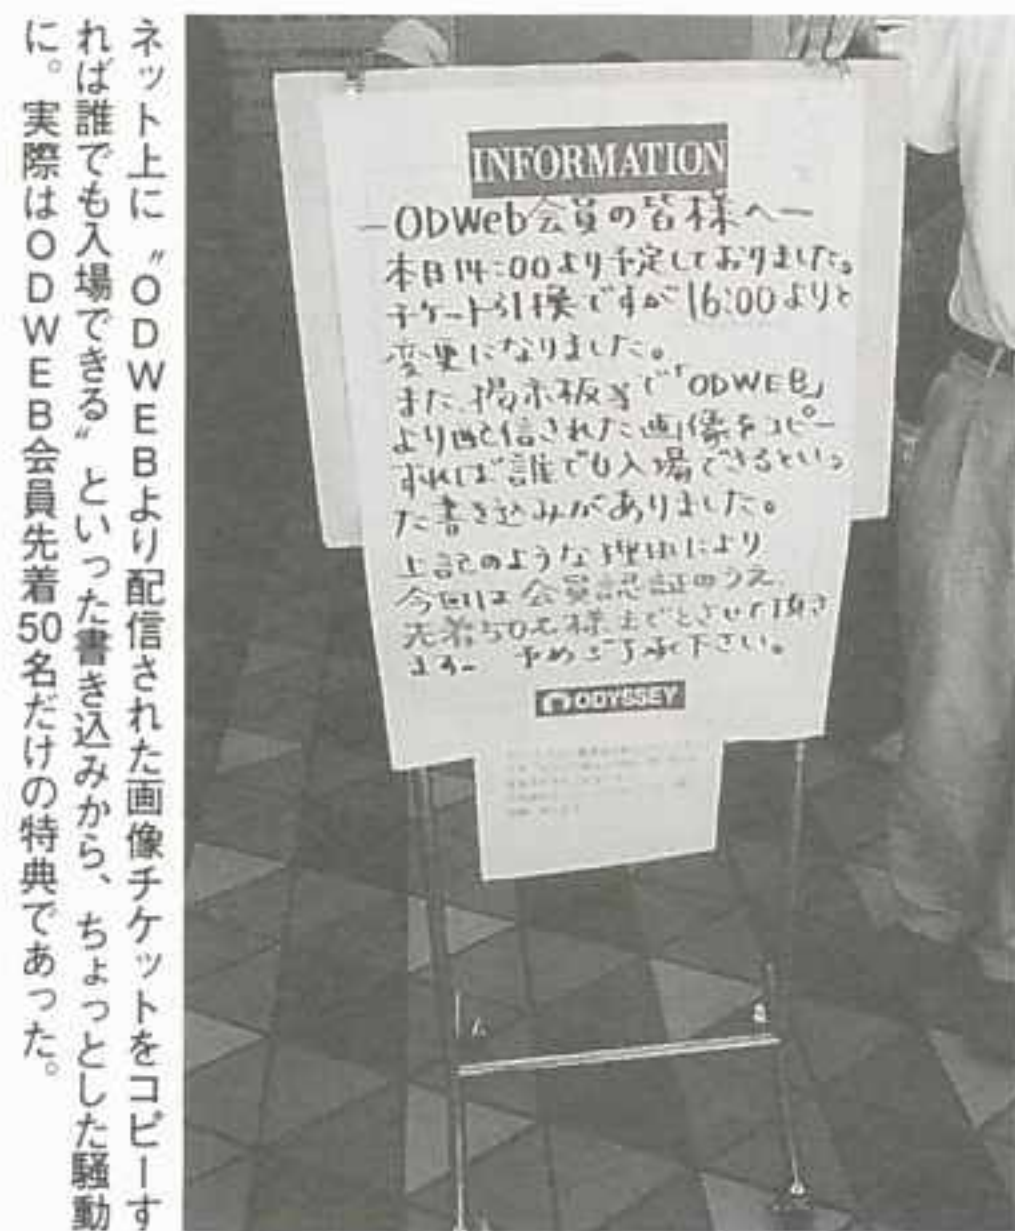 ネット上に〝ODWEBより配信された画像チケットをコピーす
れば誰でも入場できる〟といった書き込みから、ちょっとした騒動
に。実際はODWEB会員先着50名だけの特典であった。
INFORMATION
—ODWeb会員の皆様へ—
本日14:00より予定しておりました。
チケート引換ですが16:00よりと
変更になりました。
また、掲示板等で「ODWEB」
より配信された画像をコピー
すれば誰でも入場できるといっ
た書き込みがありました。
上記のような理由により
今回は会員認証のうえ、
先着50名様までとさせて頂き
ます。予めご了承下さい。
ODYSSEY